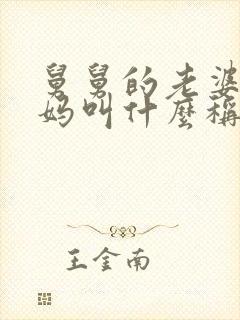 舅舅的老婆
妈叫什麼稱
王金南